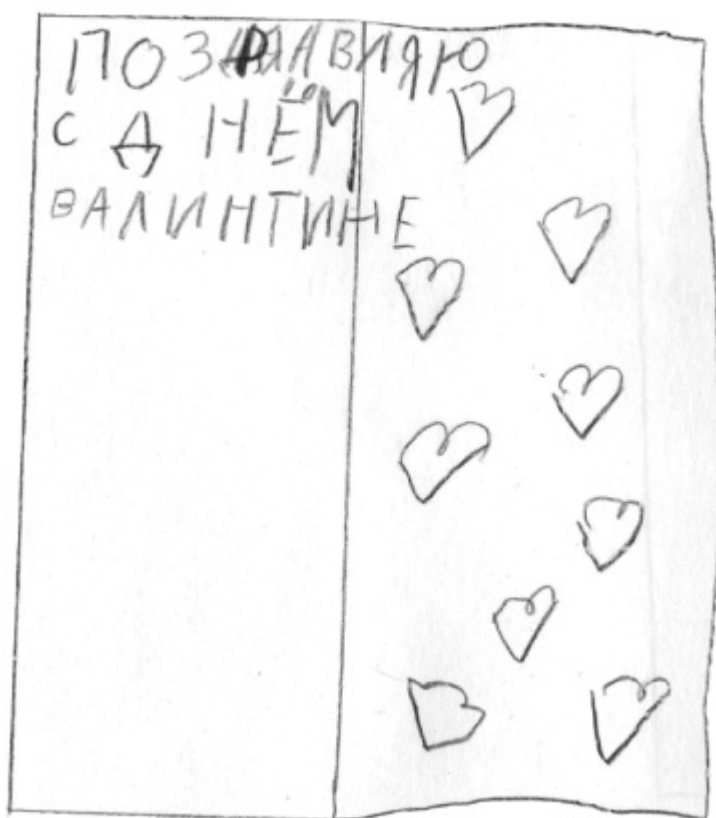 ПОЗДРАВЛЯЮ
С ДНЁМ
ВАЛИНТИНЕ